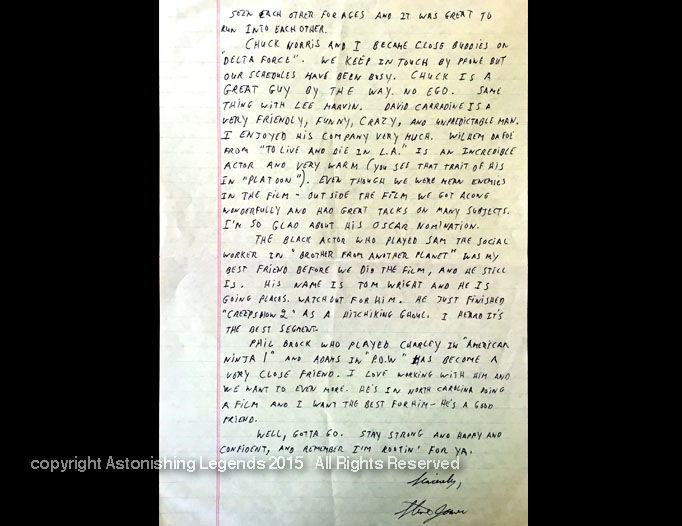 SEEN EACH OTHER FOR AGES AND IT WAS GREAT TO
RUN INTO EACH OTHER.
CHUCK NORRIS AND I BECAME CLOSE BUDDIES ON
"DELTA FORCE". WE KEEP IN TOUCH BY PHONE BUT
OUR SCHEDULES HAVE BEEN BUSY. CHUCK IS A
GREAT GUY BY THE WAY. NO EGO. SAME
THING WITH LEE MARVIN. DAVID CARRADINE IS A
VERY FRIENDLY, FUNNY, CRAZY, AND UNPREDICTABLE MAN.
I ENJOYED HIS COMPANY VERY MUCH. WILHEM DAFOE
FROM "TO LIVE AND DIE IN L.A." IS AN INCREDIBLE
ACTOR AND VERY WARM (YOU SEE THAT TRAIT OF HIS
IN "PLATOON"). EVEN THOUGH WE WERE MEAN ENEMIES
IN THE FILM - OUTSIDE THE FILM WE GOT ALONG
WONDERFULLY AND HAD GREAT TALKS ON MANY SUBJECTS.
I'M SO GLAD ABOUT HIS OSCAR NOMINATION.
THE BLACK ACTOR WHO PLAYED SAM THE SOCIAL
WORKER IN "BROTHER FROM ANOTHER PLANET" WAS MY
BEST FRIEND BEFORE WE DID THE FILM, AND HE STILL
IS. HIS NAME IS TOM WRIGHT AND HE IS
GOING PLACES. WATCH OUT FOR HIM. HE JUST FINISHED
"CREEPSHOW 2" AS A HITCHIKING GHOUL. I HEARD IT'S
THE BEST SEGMENT.
PHIL BROCK WHO PLAYED CHARLEY IN "AMERICAN
NINJA I" AND ADAMS IN "P.O.W" HAS BECOME A
VERY CLOSE FRIEND. I LOVE WORKING WITH HIM AND
WE WANT TO EVEN MORE. HE'S IN NORTH CAROLINA DOING
A FILM AND I WANT THE BEST FOR HIM - HE'S A GOOD
FRIEND.
WELL, GOTTA GO. STAY STRONG AND HAPPY AND
CONFIDENT, AND REMEMBER I'M ROOTIN' FOR YA.
copyright Astonishing Legends 2015 All Rights Reserved
Sincerely,